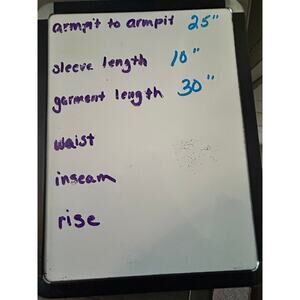 armpit to armpit 25"
sleeve length 10"
garment length 30"
waist
inseam
rise